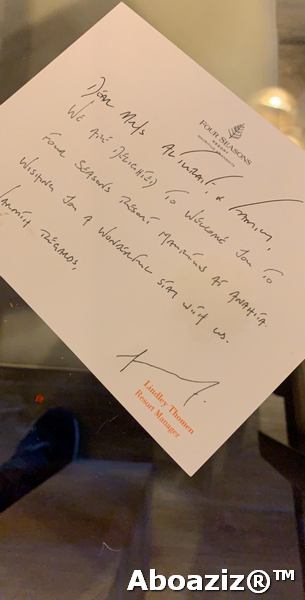 FOUR SEASONS
RESORT
Dear Mrs Alturait, & Family,
We are delighted to welcome you to
Four Seasons Resort Mauritius at Anahita.
Wishing you a wonderful stay with us.
Regards,
Lindley Thomen
Resort Manager
Aboaziz®™